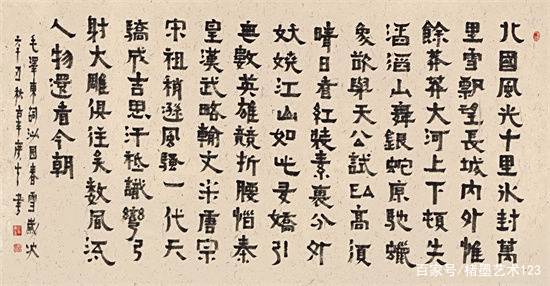 北國風光千里冰封萬
里雪飄望長城內外惟
餘莽莽大河上下頓失
滔滔山舞銀蛇原馳蠟
象欲與天公試比高須
晴日看紅裝素裹分外
妖嬈江山如此多嬌引
無數英雄競折腰惜秦
皇漢武略輸文采唐宗
宋祖稍遜風騷一代天
驕成吉思汗祗識彎弓
射大雕俱往矣數風流
人物還看今朝
毛澤東詞沁園春雪歲次
辛丑秋
百家号/楮墨艺术123